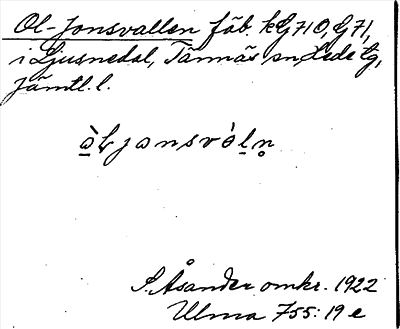 Ol-Jonsvallen fäb. kG 710, G 71,
i Ljusnedal, Tännäs sn, Hede tg,
Jämtl. l.
S. Åsander omkr. 1922
Ulma 755:19 e